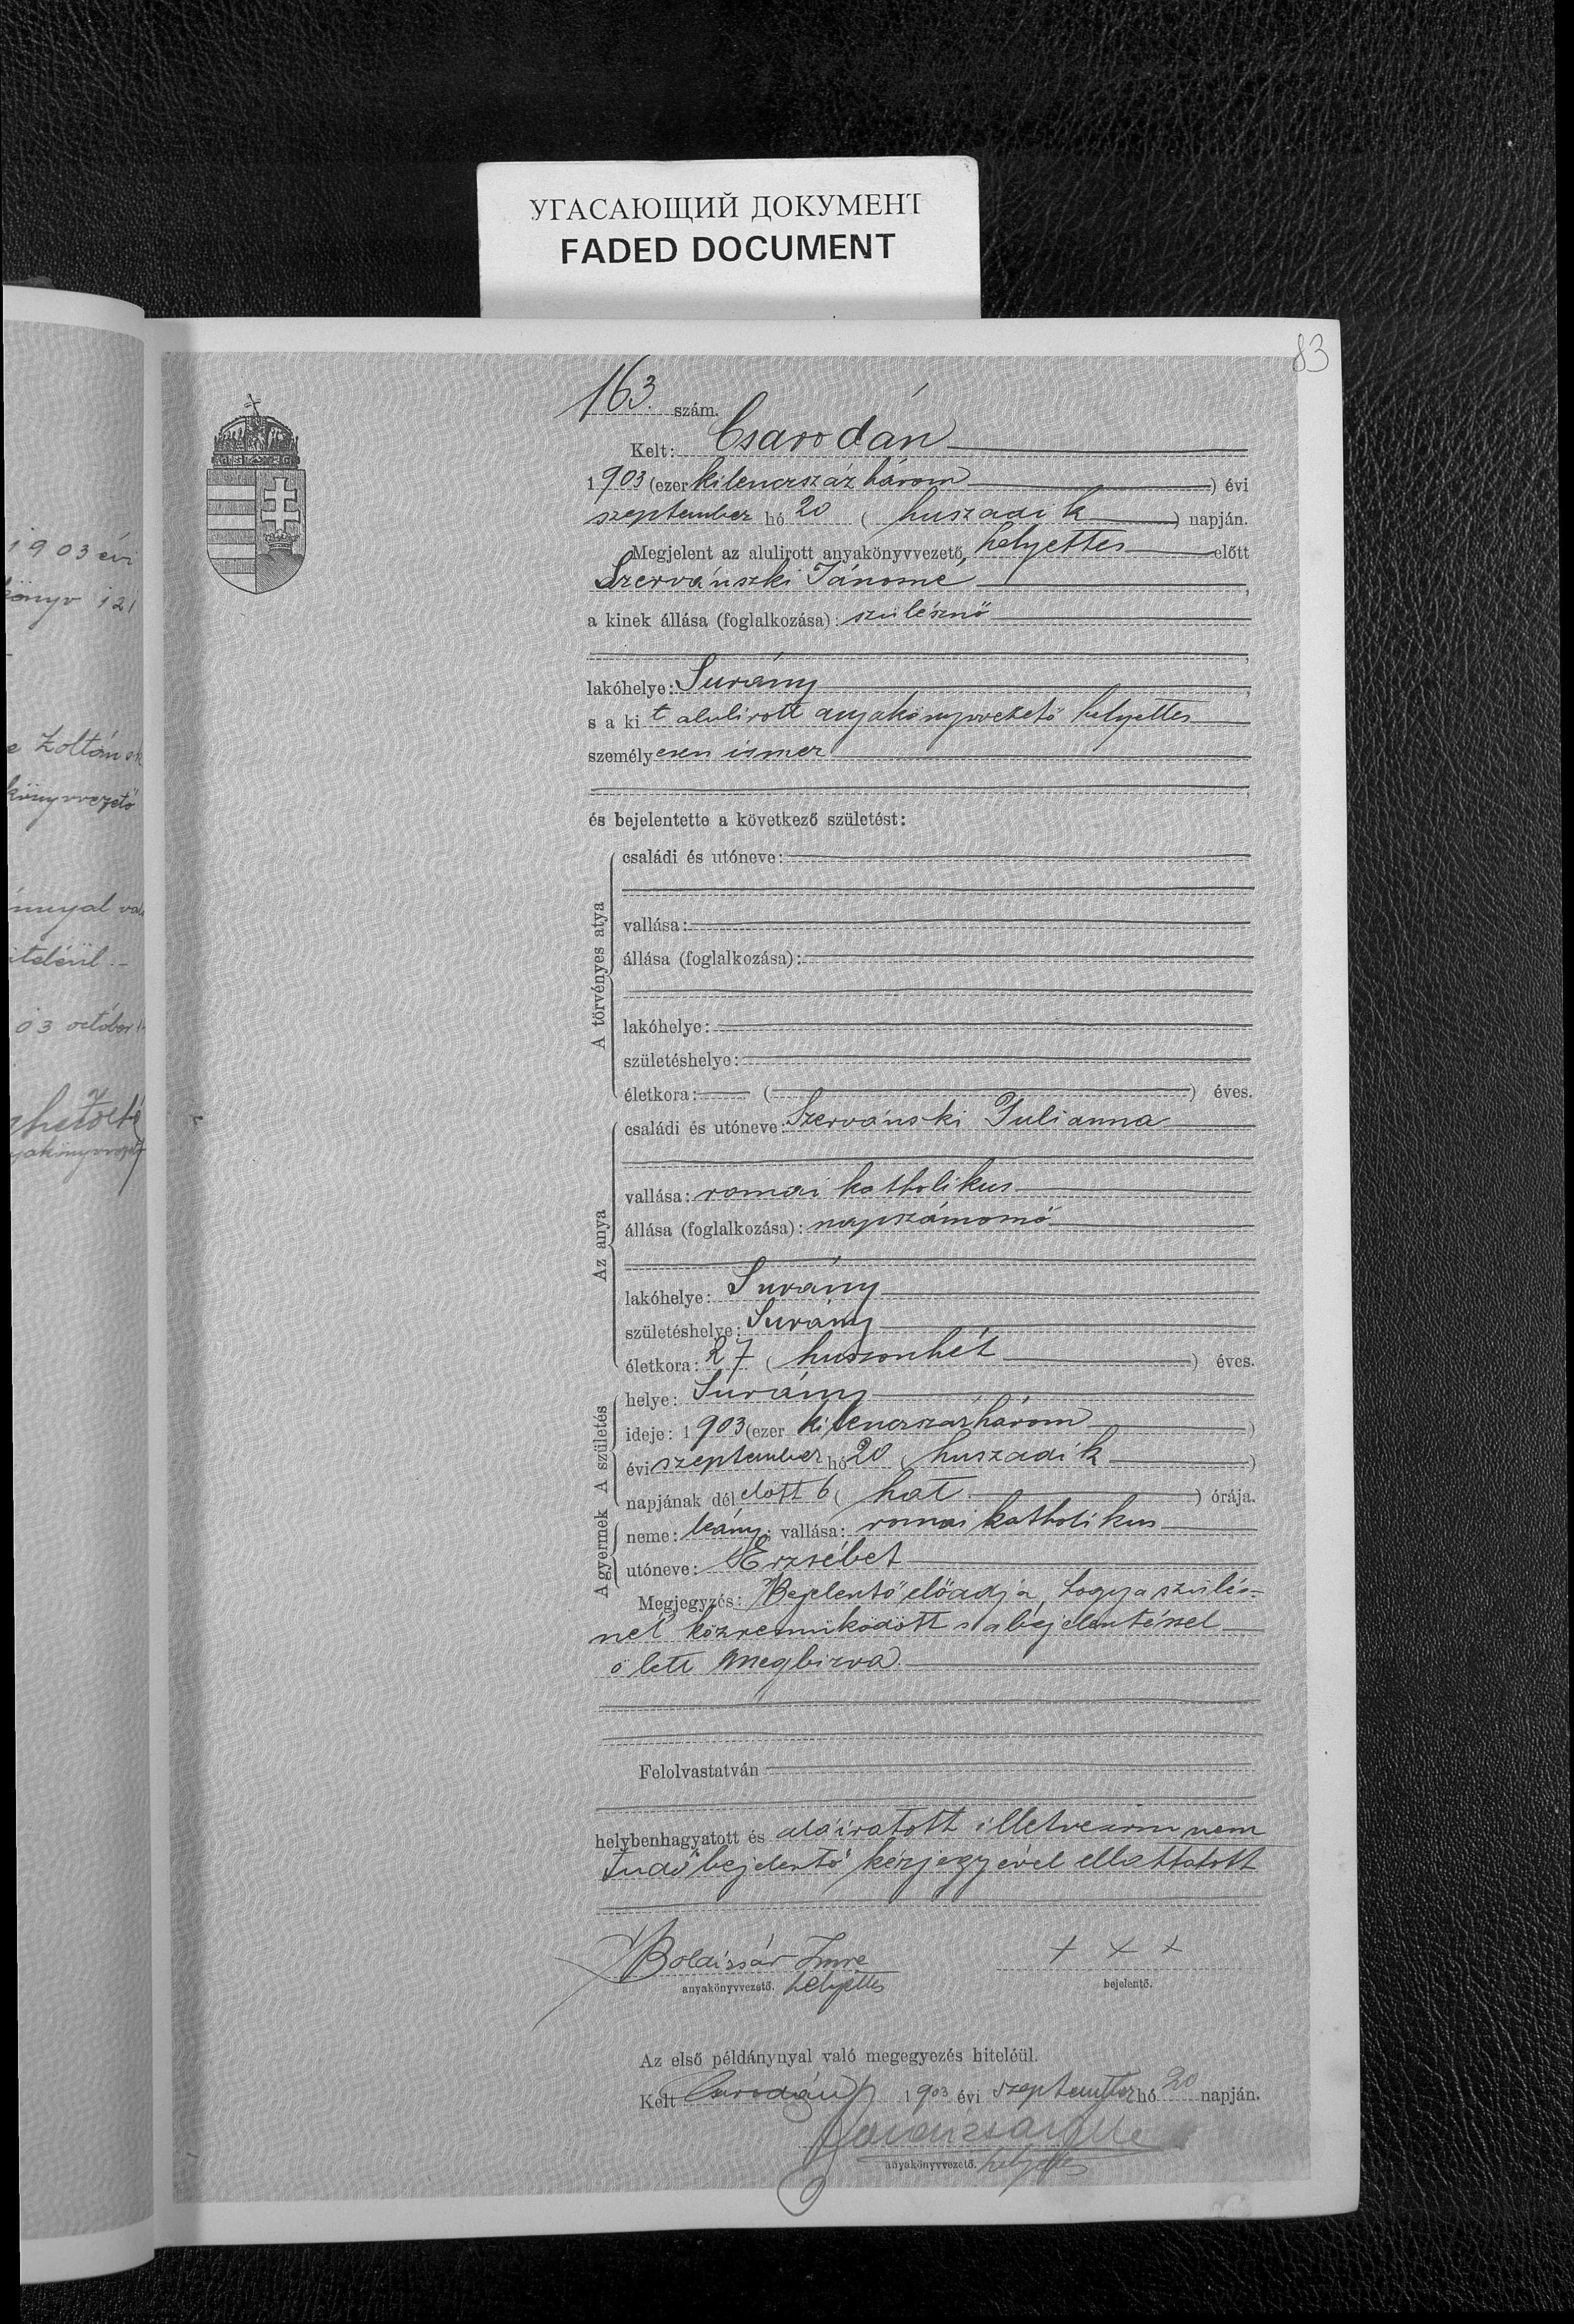 УГАСАЮЩИЙ ДОКУМЕНТ
FADED DOCUMENT
83
163. szám.
Kelt: Csarodán
1903 (ezer kilenczszáz három) évi
szeptember hó 20 (huszadik) napján.
Megjelent az alulirott anyakönyvvezető helyettes előtt
Szervánszki Jánosné,
a kinek állása (foglalkozása): szülésznő
lakóhelye: Surány,
s a kit alulirott anyakönyvvezető helyettes
személyesen ismer
és bejelentette a következő születést:
A törvényes atya
családi és utóneve:
vallása:
állása (foglalkozása):
lakóhelye:
születéshelye:
életkora: ( ) éves.
Az anya
családi és utóneve: Szervánski Julianna
vallása: romai katholikus
állása (foglalkozása): napszámosnő
lakóhelye: Surány
születéshelye: Surány
életkora: 27 (huszonhét) éves.
A születés
helye: Surány
ideje: 1903 (ezer kilenczszázhárom)
évi szeptember hó 20 (huszadik)
napjának délelőtt 6 (hat) órája.
A gyermek
neme: leány; vallása: romai katholikus
utóneve: Erzsébet
Megjegyzés: Bejelentő előadja, hogy a szülés-
nél közreműködött s a bejelentéssel
ő lett megbizva.
Felolvastatván
helybenhagyatott és aláiratott illetve irni nem
tudó bejelentő kézjegyével elláttatott
Imre + + +
anyakönyvvezető. helyettes bejelentő.
Az első példánynyal való megegyezés hiteléül.
Kelt Csarodán 1903 évi szeptember hó 20 napján.
anyakönyvvezető. helyettes
1903 évi
könyv 121
Zoltán sk
könyvvezető
ánnyal való
iteléül.
03 october